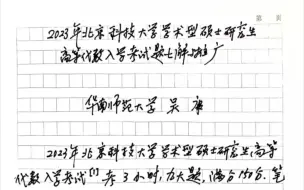 第 页
2023年北京科技大学学术型硕士研究生
高等代数入学考试试题七解与推广
华南师范大学 吴康
2023年北京科技大学学术型硕士研究生高等
代数入学考试[1]考3小时,九大题,满分150分.笔